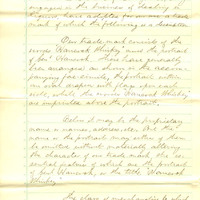 engaged in the business of
have adopted for our use a trade
mark of which the following is a description
Our trade mark consists of the
words "Hancock Whisky" and the portrait
of Gen'l Hancock. These have generally
been arranged as shown in the accom-
panying fac-simile, the portrait within
an oval draped with flags upon each
side, while the words "Hancock Whisky"
are imprinted above the portrait.
Below it may be the proprietary
name or names, address, etc. But the
name or the portrait may either of them
be omitted without materially altering
the character of our trade mark, the es-
sential feature of which are the portrait
of Gen'l Hancock, or the title "Hancock
Whisky".
The class of merchandise to which